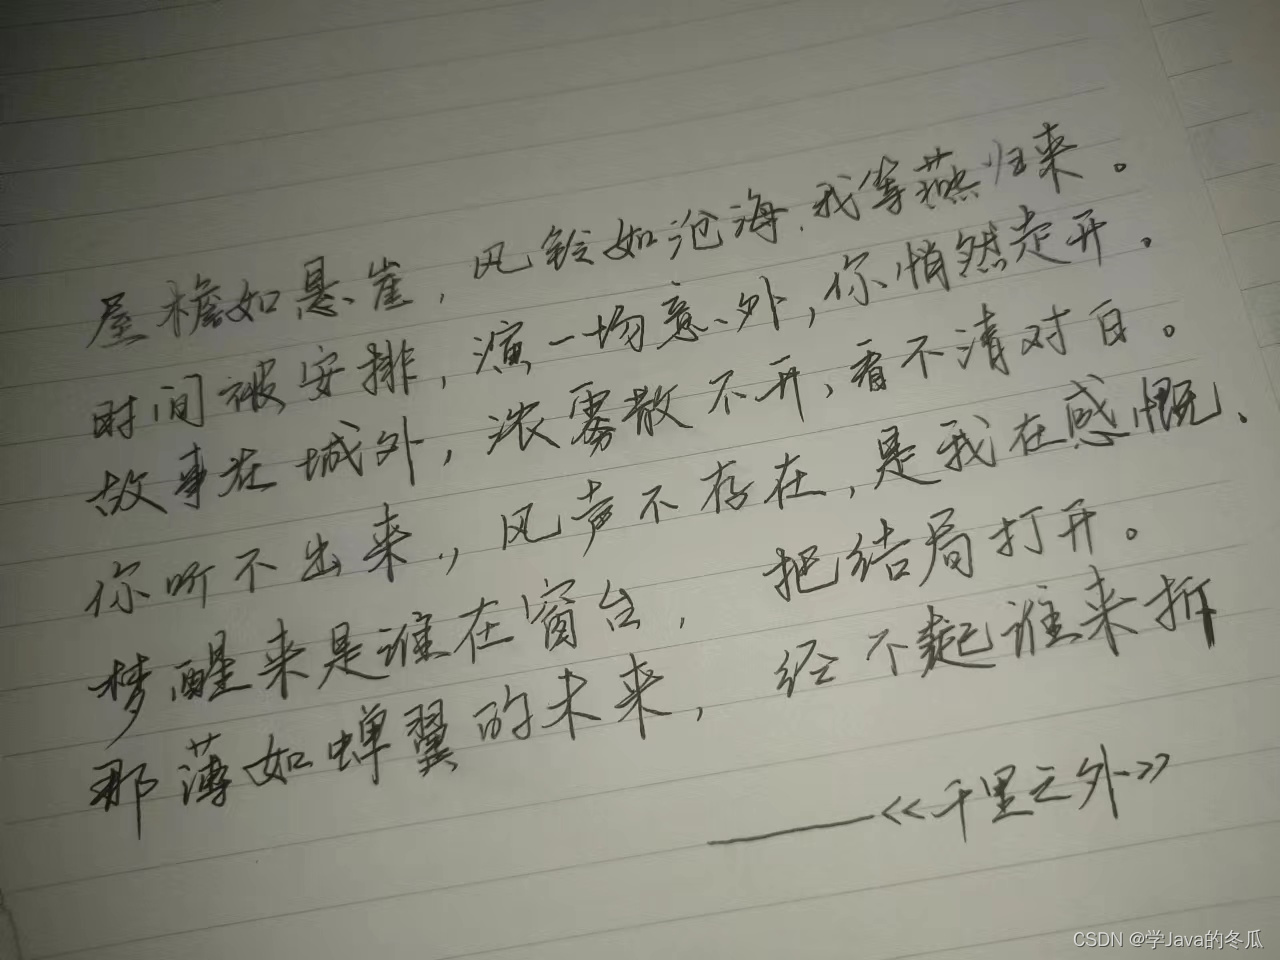 屋檐如悬崖，风铃如沧海，我等燕归来。
时间被安排，演一场意外，你悄然走开。
故事在城外，浓雾散不开，看不清对白。
你听不出来，，风声不存在，是我在感慨、
梦醒来是谁在窗台，把结局打开。
那薄如蝉翼的未来，经不起谁来拆
——《千里之外》
CSDN @学Java的冬瓜